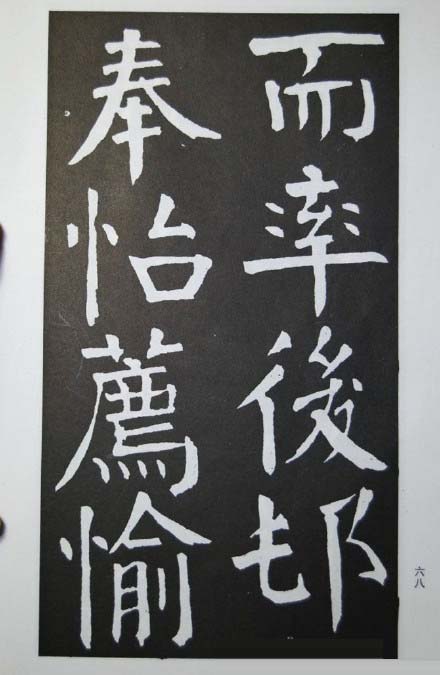 而率後邨
奉怡薦愉
六八